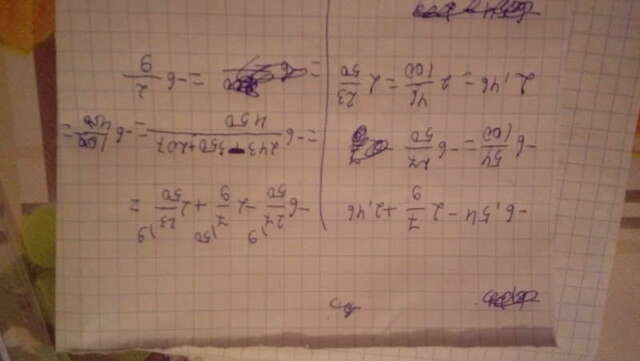 -6,54 - 2 7/9 + 2,46
-6 54/100 = -6 27/50
2,46 = 2 46/100 = 2 23/50
-6 27/50 - 2 7/9 + 2 23/50 =
= -6 243-350+207/450 = -6
= -6 2/9